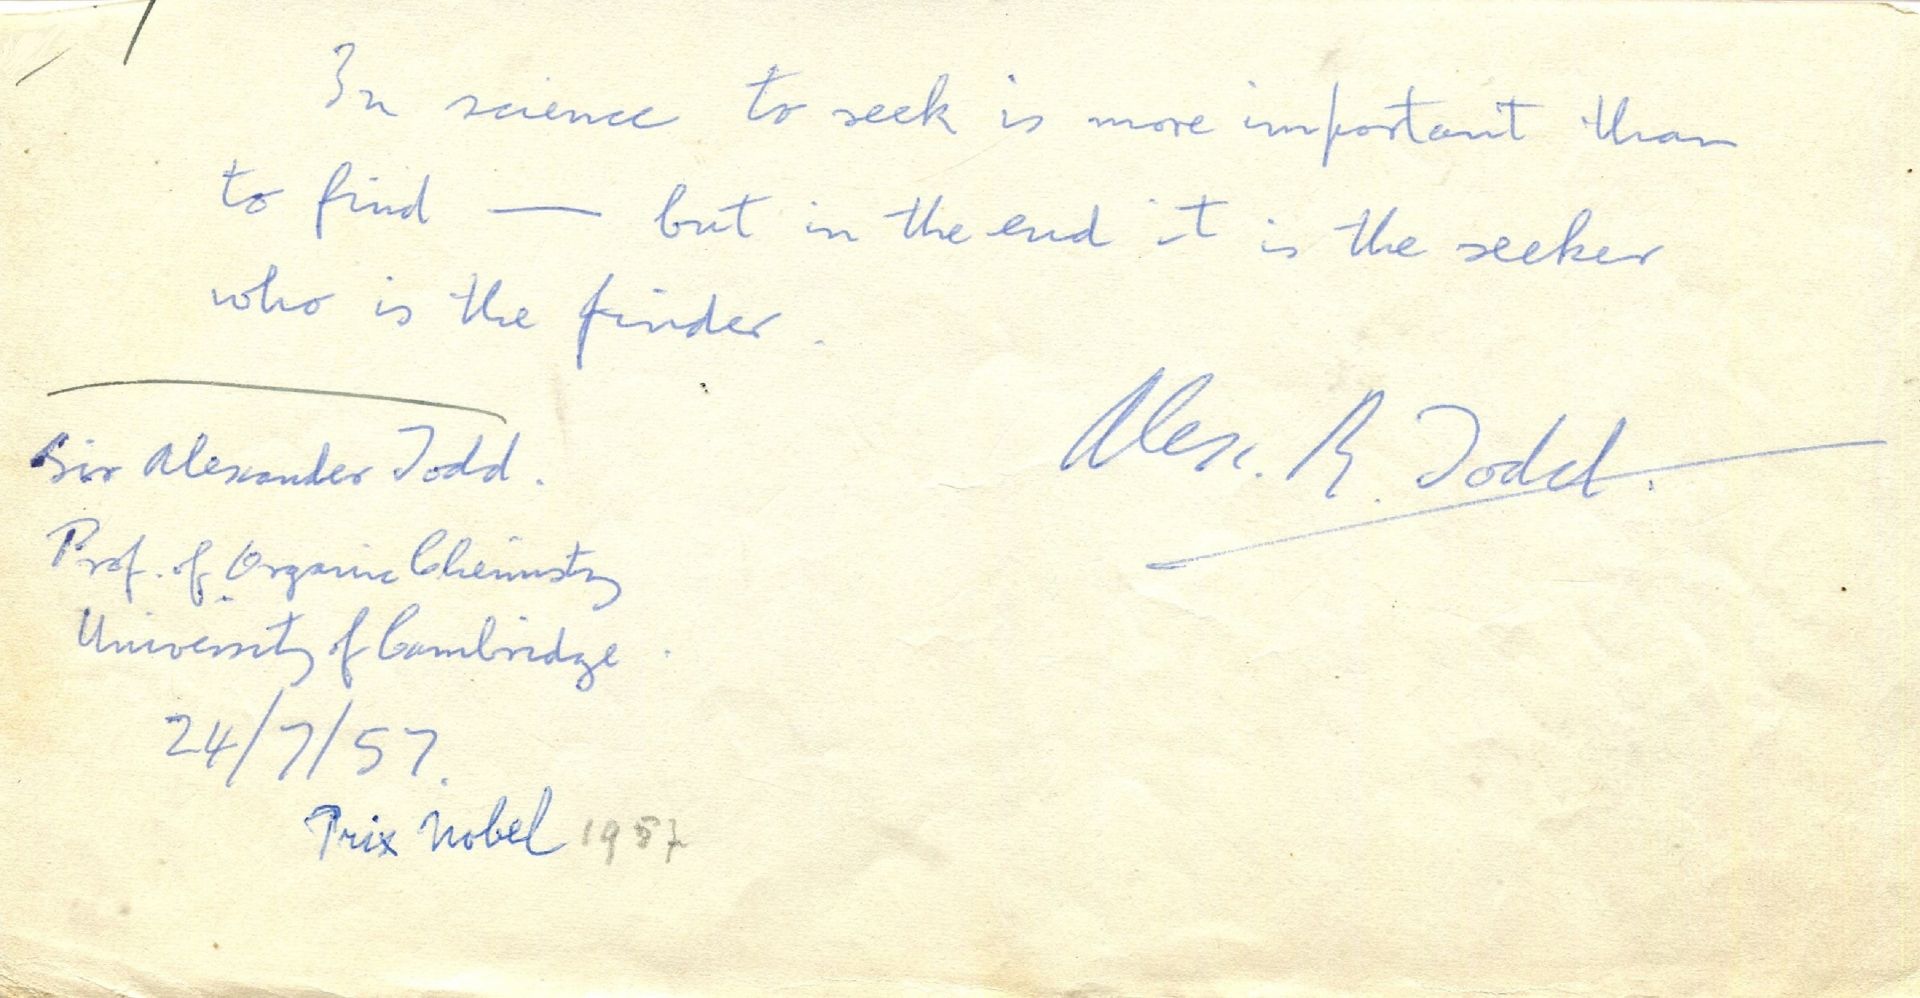 In science to seek is more important than
to find — but in the end it is the seeker
who is the finder.
Alex. R. Todd.
Sir Alexander Todd.
Prof. of Organic Chemistry
University of Cambridge.
24/7/57.
Prix Nobel 1957